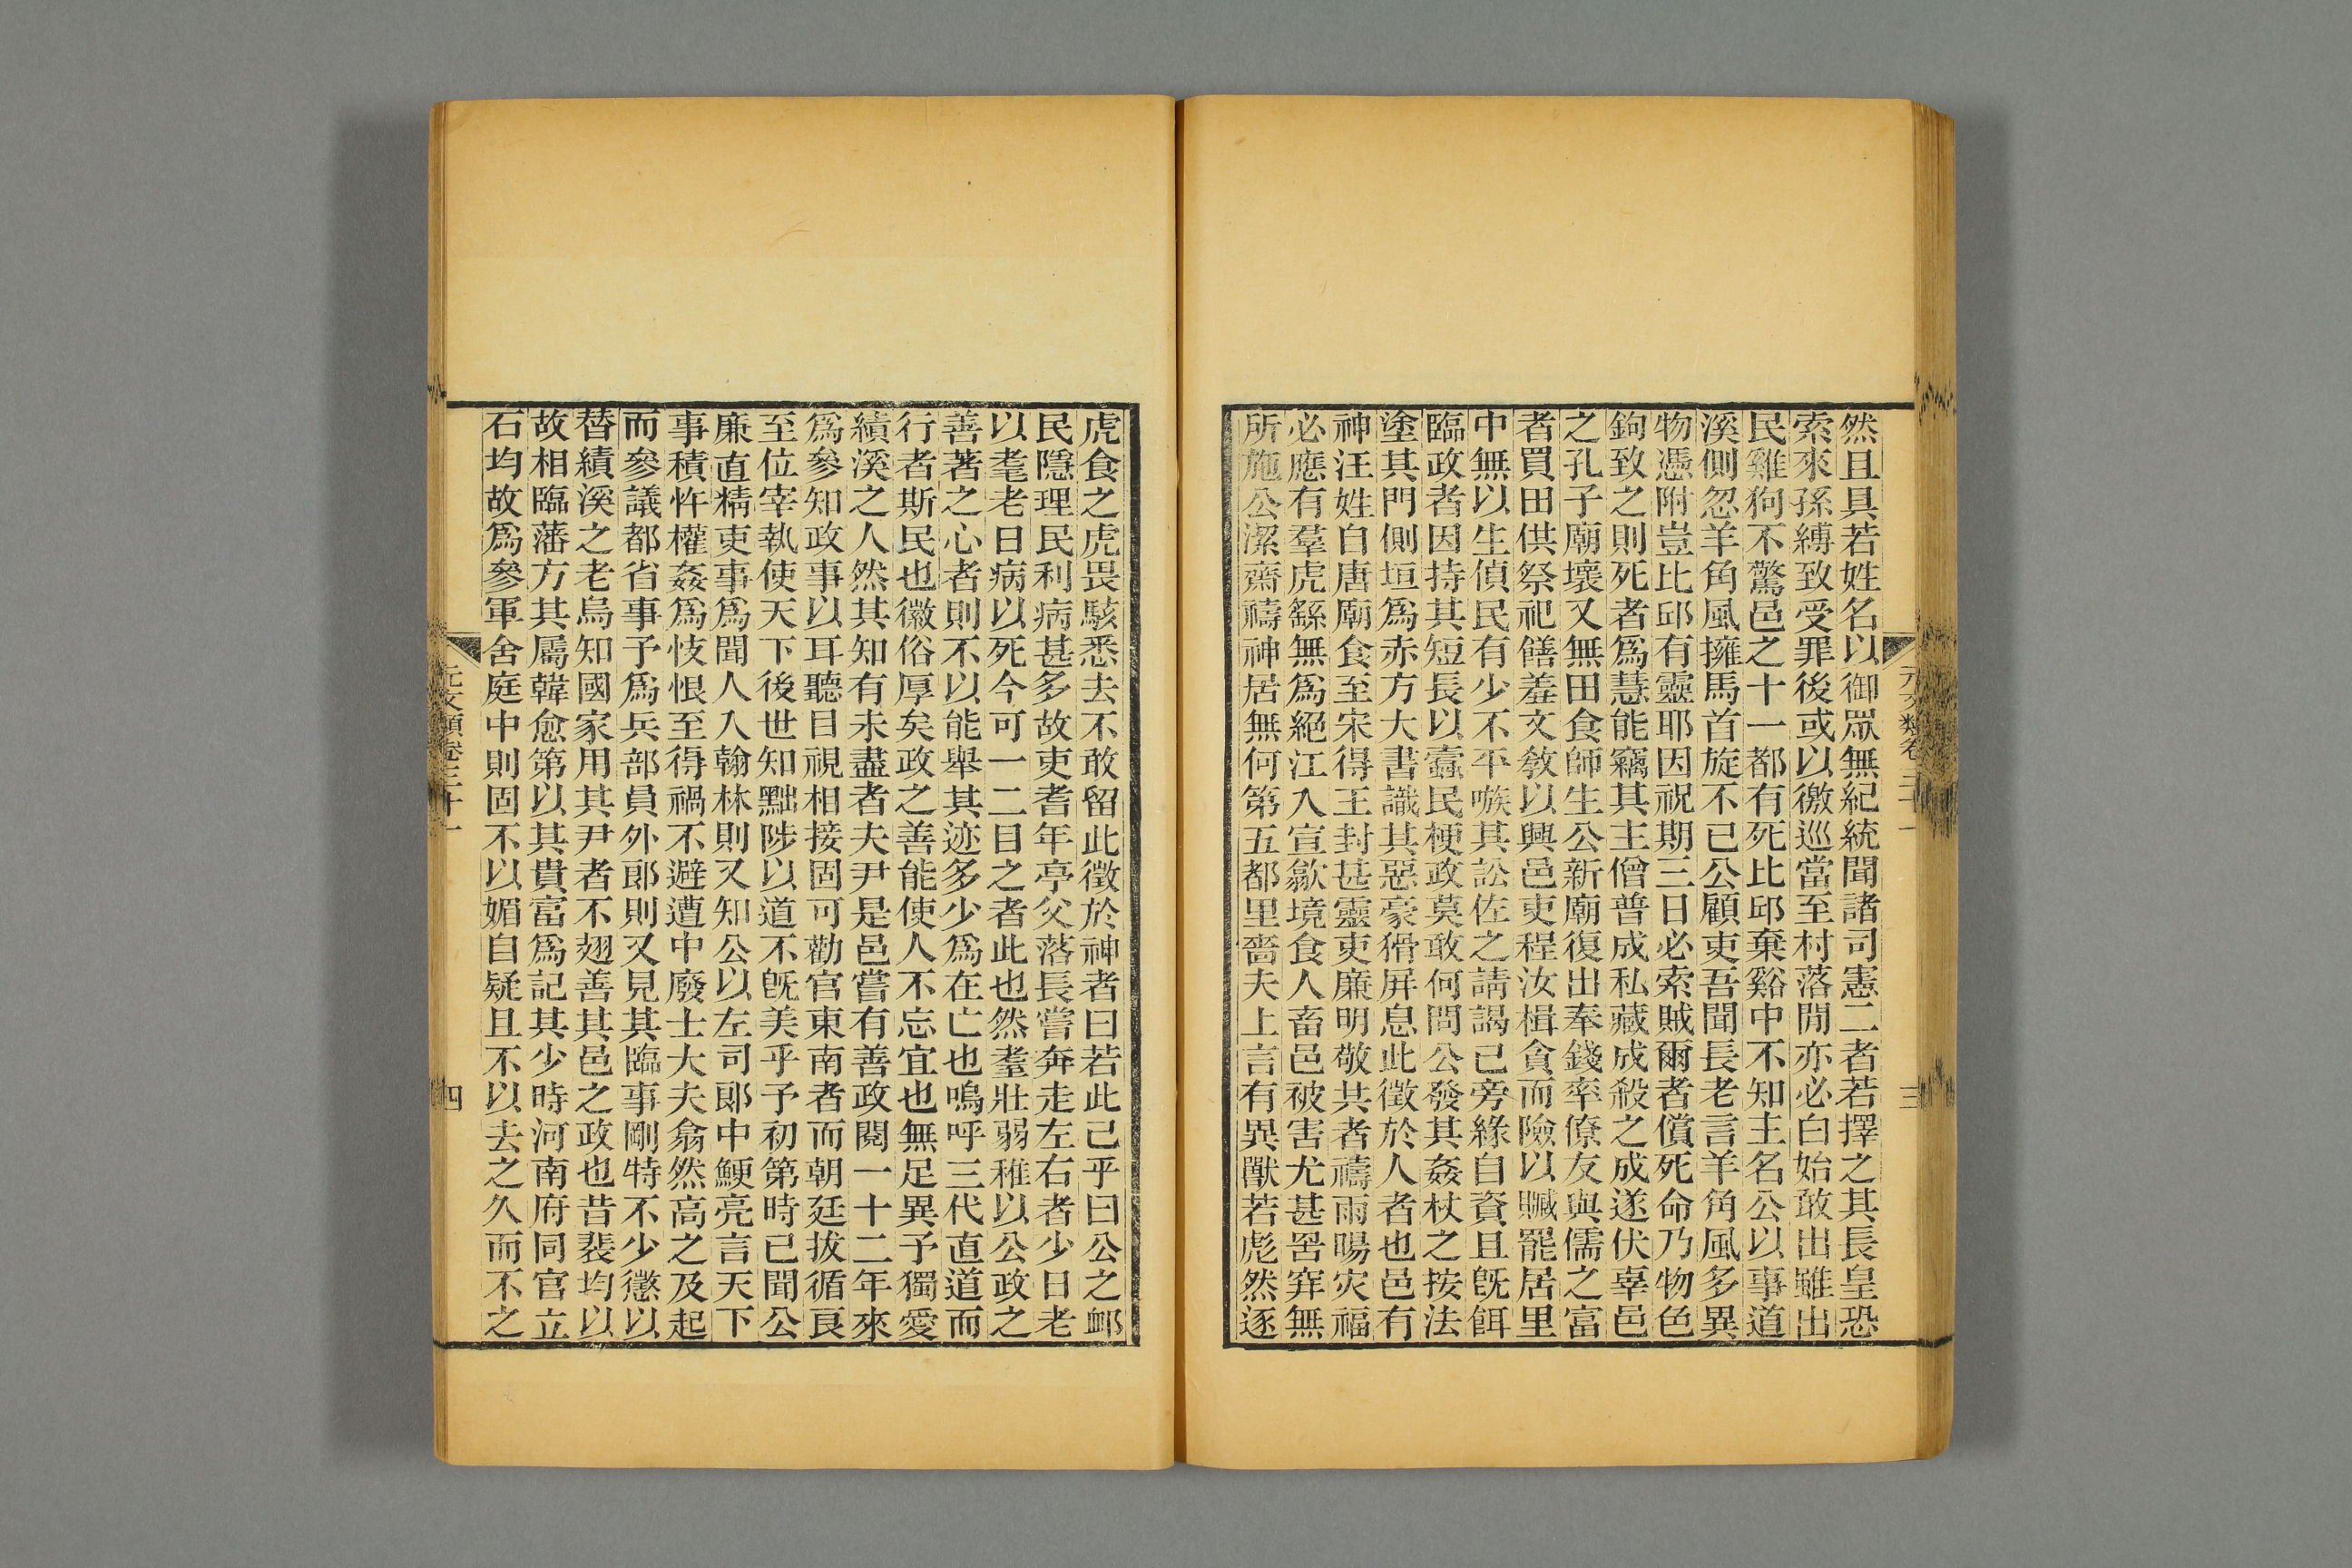 然且具若姓名以御眾無紀統聞諸司憲二者若擇之其長皇恐
索來孫縛致受罪後或以徼巡當至村落閒亦必白始敢出雖出
民雞狗不驚邑之十一都有死比邱棄谿中不知主名公以事道
溪側忽羊角風擁馬首旋不已公顧吏吾聞長老言羊角風多異
物憑附豈比邱有靈耶因祝期三日必索賊爾者償死命乃物色
鉤致之則死者爲慧能竊其主僧普成私藏成殺之成遂伏辜邑
之孔子廟壞又無田食師生公新廟復出奉錢率僚友與儒之富
者買田供祭祀饍羞文教以興邑吏程汝楫貪而險以贓罷居里
中無以生偵民有少不平嗾其訟佐之請謁己旁緣自資且旣餌
臨政者因持其短長以蠹民梗政莫敢何問公發其姦杖之按法
塗其門側垣爲赤方大書識其惡豪猾屏息此徵於人者也邑有
神汪姓自唐廟食至宋得王封甚靈吏廉明敬共者禱雨暘灾福
必應有羣虎繇無爲絕江入宣歙境食人畜邑被害尤甚罟穽無
所施公潔齋禱神居無何第五都里嗇夫上言有異獸若彪然逐
元文類卷三十一
三
虎食之虎畏駭悉去不敢留此徵於神者曰若此己乎曰公之卹
民隱理民利病甚多故吏耆年亭父落長嘗奔走左右者少日老
以耄老日病以死今可一二目之者此也然耋壯弱稚以公政之
善著之心者則不以能舉其迹多少爲在亡也嗚呼三代直道而
行者斯民也徽俗厚矣政之善能使人不忘宜也無足異予獨愛
績溪之人然其知有未盡者夫尹是邑嘗有善政閱一十二年來
爲參知政事以耳聽目視相接固可勸官東南者而朝廷拔循良
至位宰執使天下後世知黜陟以道不旣美乎予初第時已聞公
廉直精吏事爲聞人入翰林則又知公以左司郎中鯁亮言天下
事積忤權姦爲忮恨至得禍不避遭中廢士大夫翕然高之及起
而參議都省事予爲兵部員外郎則又見其臨事剛特不少懲以
替績溪之老烏知國家用其尹者不翅善其邑之政也昔裴均以
故相臨藩方其屬韓愈第以其貴富爲記其少時河南府同官立
石均故爲參軍舍庭中則固不以媚自疑且不以去之久而不之
元文類卷三十一
四